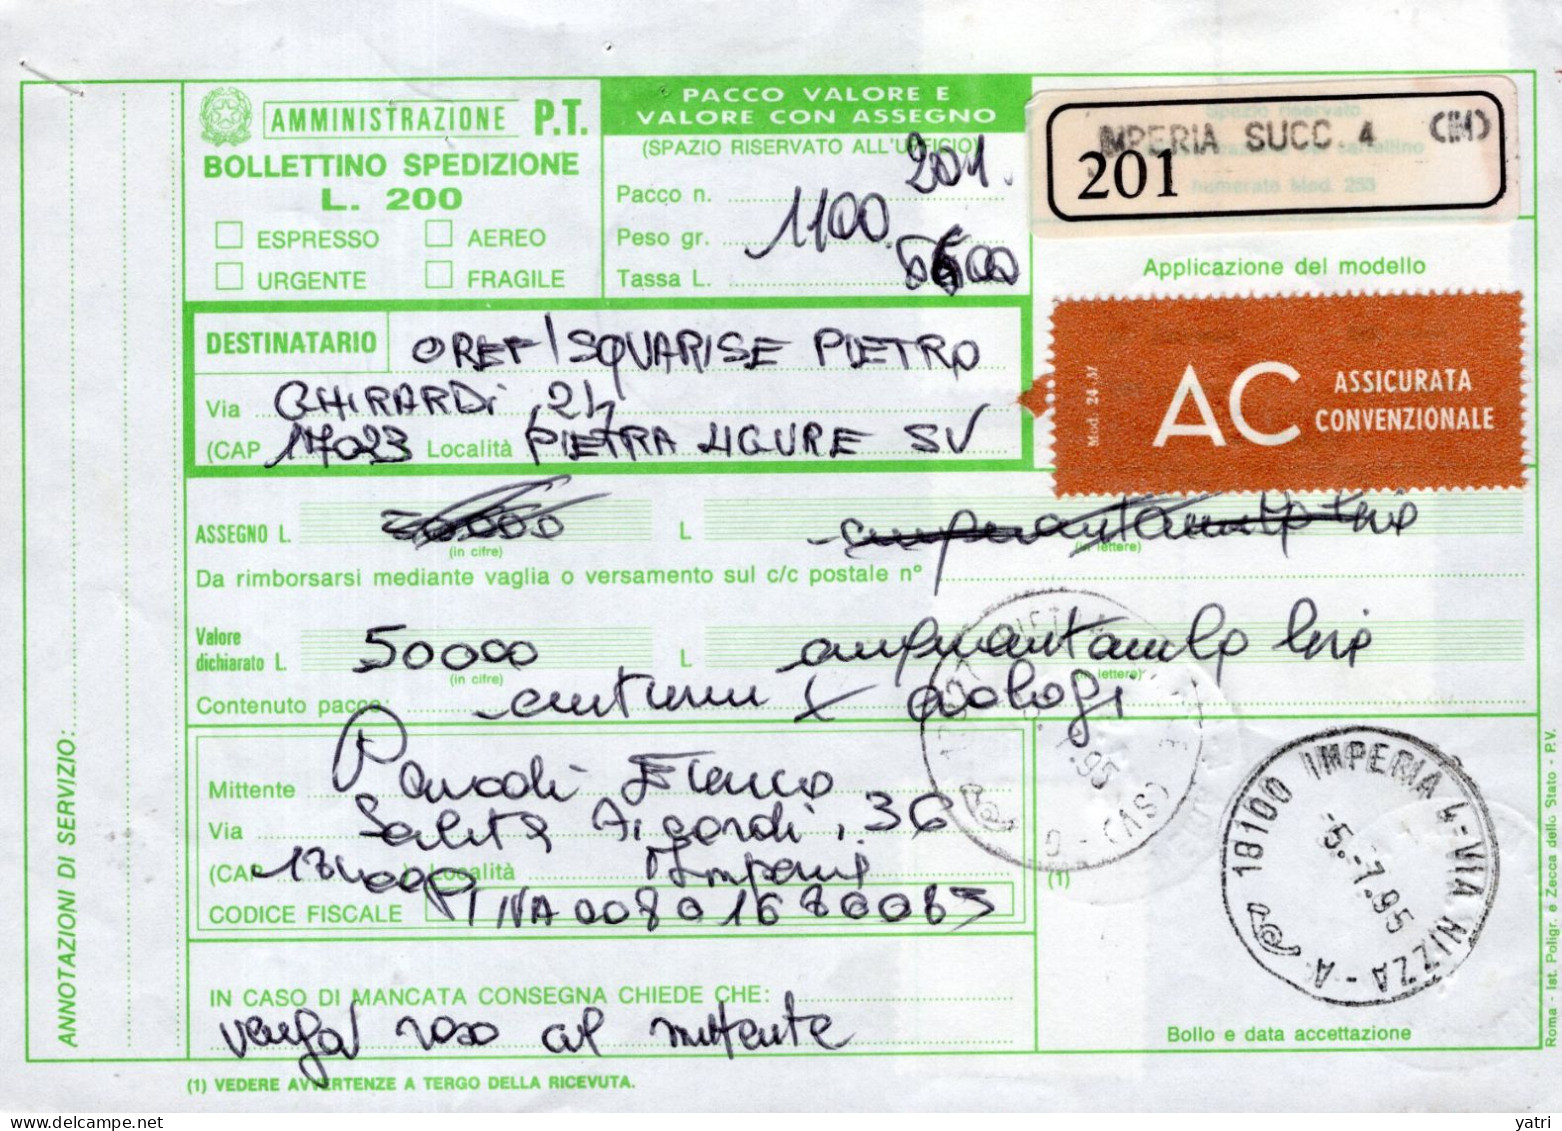 AMMINISTRAZIONE P.T.
BOLLETTINO SPEDIZIONE
L. 200
ESPRESSO AEREO
URGENTE FRAGILE
PACCO VALORE E
VALORE CON ASSEGNO
(SPAZIO RISERVATO ALL'UFFICIO)
Pacco n. 201
Peso gr. 1100
Tassa L.
Spazio riservato
MPERIA SUCC. 4 (IM)
201
numerato Mod. 253
Applicazione del modello
Mod. 24-bf
AC ASSICURATA
CONVENZIONALE
DESTINATARIO OREF/SQUARISE PIETRO
Via GHIRARDI 24
(CAP 17023 Località PIETRA LIGURE SV
ASSEGNO L. 50.000 L
(in cifre) (in lettere)
Da rimborsarsi mediante vaglia o versamento sul c/c postale n°
Valore
dichiarato L. 50000 L cinquantamila lire
(in cifre) (in lettere)
Contenuto pacco cinturini x orologi
Mittente Parodi
Via Salita Aicardi, 36
(CAP Località Imperia
CODICE FISCALE P IVA 00801680085
(1)
IN CASO DI MANCATA CONSEGNA CHIEDE CHE:
venga reso al mittente
18100 IMPERIA 4-VIA NIZZA-A
-5.-7.95
Bollo e data accettazione
(1) VEDERE AVVERTENZE A TERGO DELLA RICEVUTA.
ANNOTAZIONI DI SERVIZIO:
Roma - Ist. Poligr. e Zecca dello Stato - P.V.
yatri